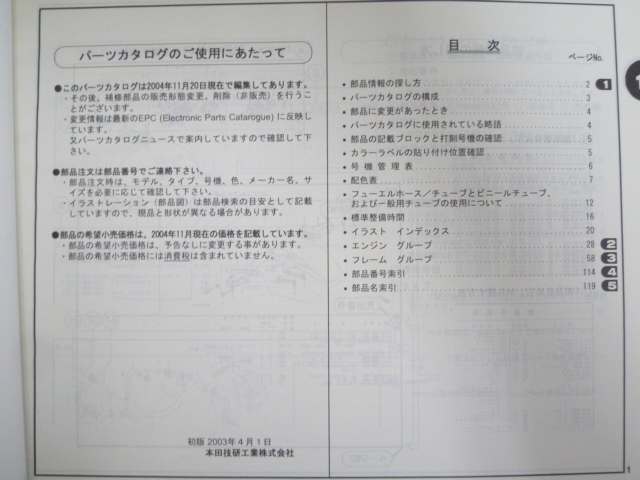 パーツカタログのご使用にあたって
●このパーツカタログは2004年11月20日現在で編集してあります。
・その後、補修部品の販売形態変更、削除（非販売）を行うこ
とがございます。
・変更情報は最新のEPC (Electronic Parts Catarogue) に反映し
ています。
又パーツカタログニュースで案内していますので確認して下
さい。
●部品注文は部品番号でご連絡下さい。
・部品注文時は、モデル、タイプ、号機、色、メーカー名、サ
イズを必要に応じて確認して下さい。
・イラストレーション（部品図）は部品検索の目安として記載
していますので、現品と形状が異なる場合があります。
●部品の希望小売価格は、2004年11月現在の価格を記載しています。
・部品の希望小売価格は、予告なしに変更する事があります。
・部品の希望小売価格には消費税は含まれていません。
初版 2003年4月1日
本田技研工業株式会社
目 次
ページNo.
・部品情報の探し方 2 1
・パーツカタログの構成 3
・部品に変更があったとき 4
・パーツカタログに使用されている略語 4
・部品の記載ブロックと打刻号機の確認 5
・カラーラベルの貼り付け位置確認 5
・号機管理表 6
・配色表 7
・フューエルホース／チューブとビニールチューブ、
および一般用チューブの使用について 12
・標準整備時間 16
・イラスト インデックス 20
・エンジン グループ 28 2
・フレーム グループ 58 3
・部品番号索引 114 4
・部品名索引 119 5
1
1